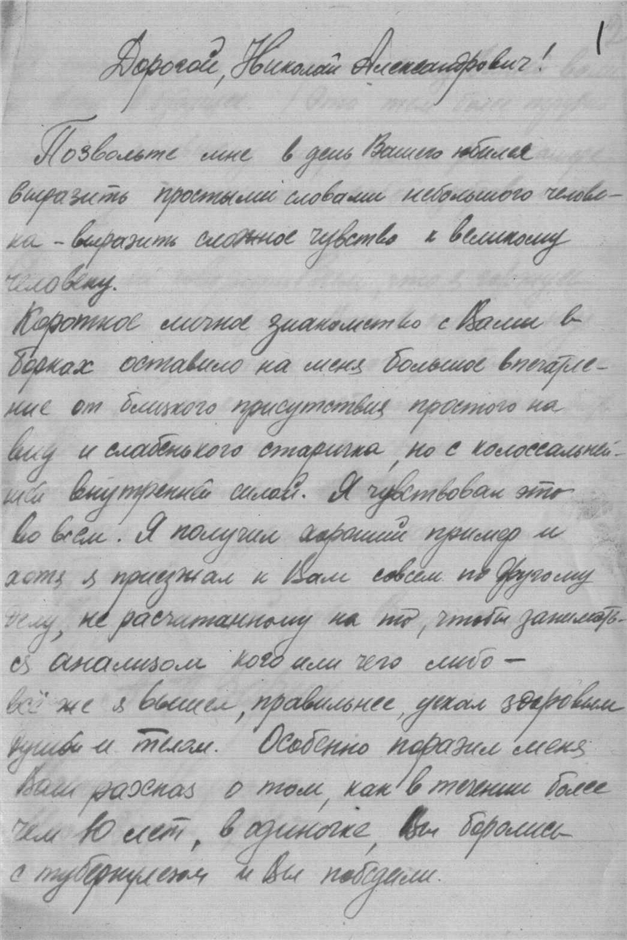 1
Дорогой, Николай Александрович!
Позвольте мне в день Вашего юбилея
выразить простыми словами небольшого челове-
ка - выразить сложное чувство к великому
человеку.
Короткое личное знакомство с Вами в
борках оставило на меня большое впечатле-
ние от близкого присутствия простого на
вид и слабенького старичка, но с колоссальней-
шей внутренней силой. Я чувствовал это
во всём. Я получил хороший пример и
хотя я приезжал к Вам совсем по другому
делу, не расчитанному на то, чтобы занимать-
ся анализом кого или чего либо –
всё же я вышел, правильнее, уехал здоровым
душой и телом. Особенно поразил меня
Ваш расказ о том, как в течении более
чем 10 лет, в одиночке, Вы боролись
с туберкулезом и Вы победили.